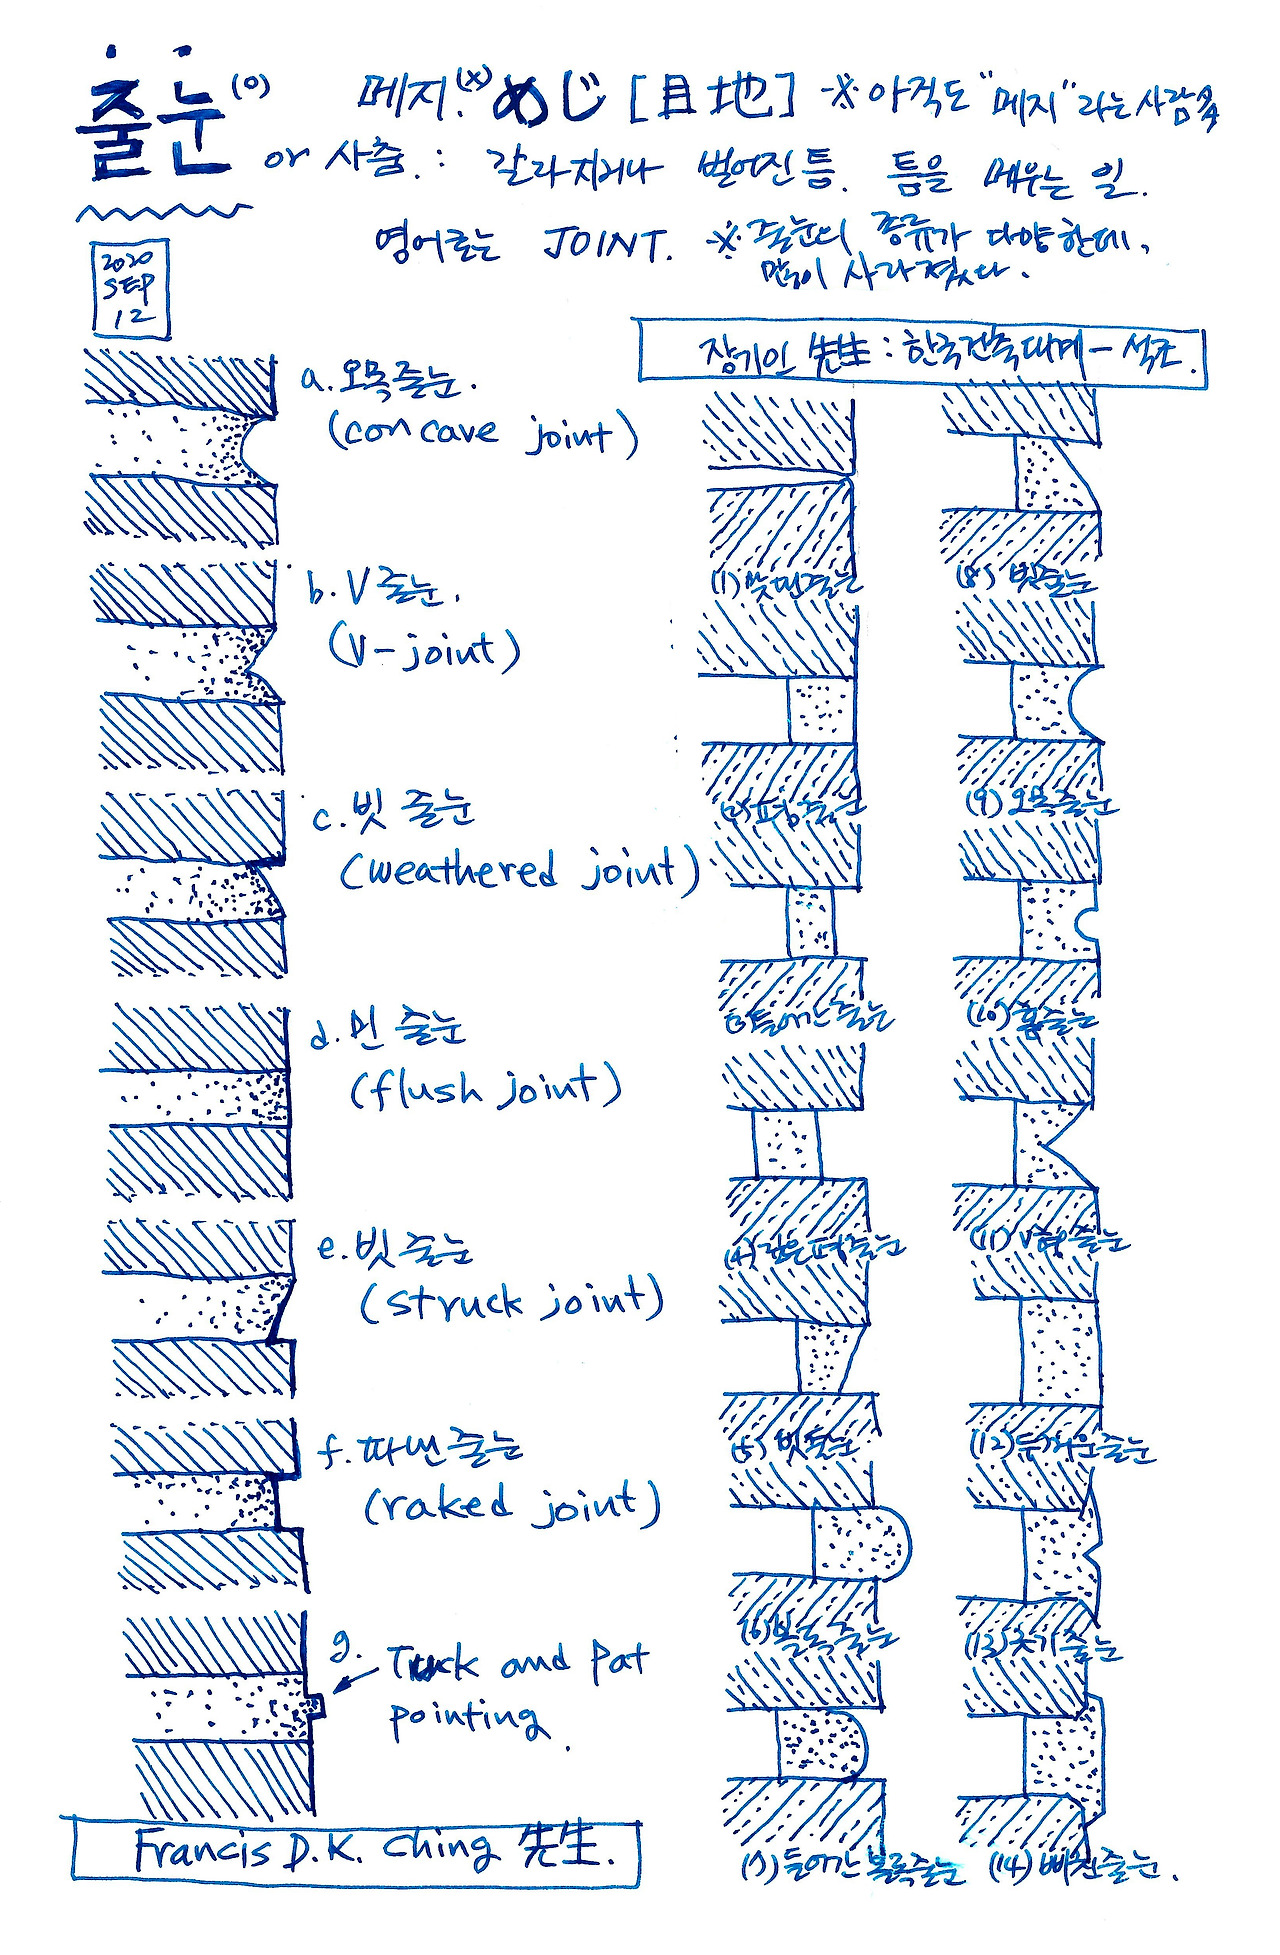 줄눈(o) 메지.(x) めじ [目地] ※ 아직도 "메지"라는 사람多
or 사춤.: 갈라지거나 벌어진 틈. 틈을 메우는 일.
영어로는 JOINT. ※ 줄눈의 종류가 다양한데,
많이 사라졌다.
2020
SEP
12
a. 오목줄눈.
(concave joint)
b. V줄눈.
(V-joint)
c. 빗줄눈
(weathered joint)
d. 민줄눈
(flush joint)
e. 빗줄눈
(struck joint)
f. 파낸줄눈
(raked joint)
g. Tuck and Pat
pointing.
Francis D.K. Ching 先生.
장기인 先生 : 한국건축대계 - 석조.
(1) 맞댄줄눈
(2) 평줄눈
(3) 들어간줄눈
(4) 깊은평줄눈
(5) 빗줄눈
(6) 볼록줄눈
(7) 들어간볼록줄눈
(8) 빗줄눈
(9) 오목줄눈
(10) 홈줄눈
(11) V형줄눈
(12) 두꺼운줄눈
(13) 줄눈
(14) 줄눈.